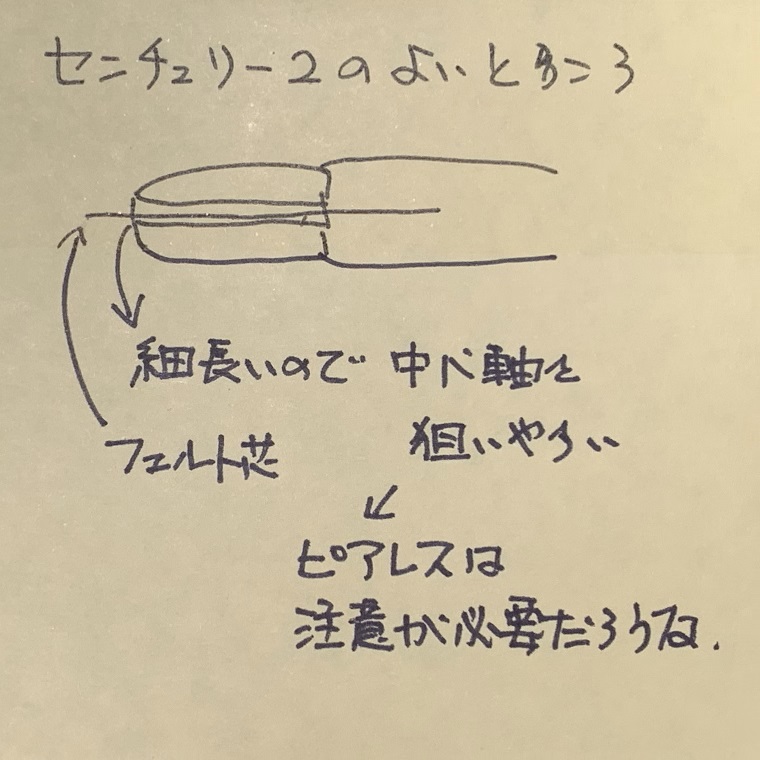 センチュリー2のよいところ
細長いので 中心軸を
狙いやすい
フェルト芯
ピアレスは
注意が必要だろうな.